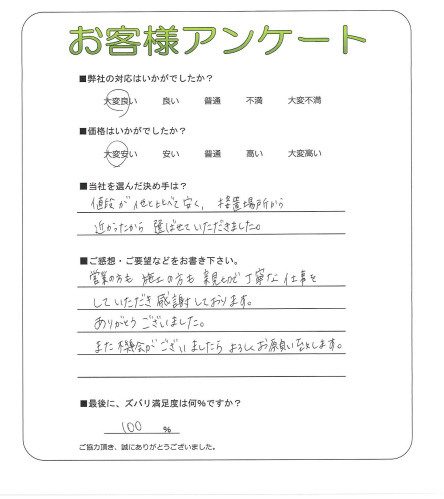 お客様アンケート
■弊社の対応はいかがでしたか？
大変良い 良い 普通 不満 大変不満
■価格はいかがでしたか？
大変安い 安い 普通 高い 大変高い
■当社を選んだ決め手は？
値段が他と比べて安く、 設置場所から
近かったから 選ばせていただきました。
■ご感想・ご要望などをお書き下さい。
営業の方も 施工の方も 親切で 丁寧な 仕事を
していただき 感謝しております。
ありがとう ございました。
また機会がございましたら よろしくお願い致します。
■最後に、ズバリ満足度は何％ですか？
100 ％
ご協力頂き、誠にありがとうございました。